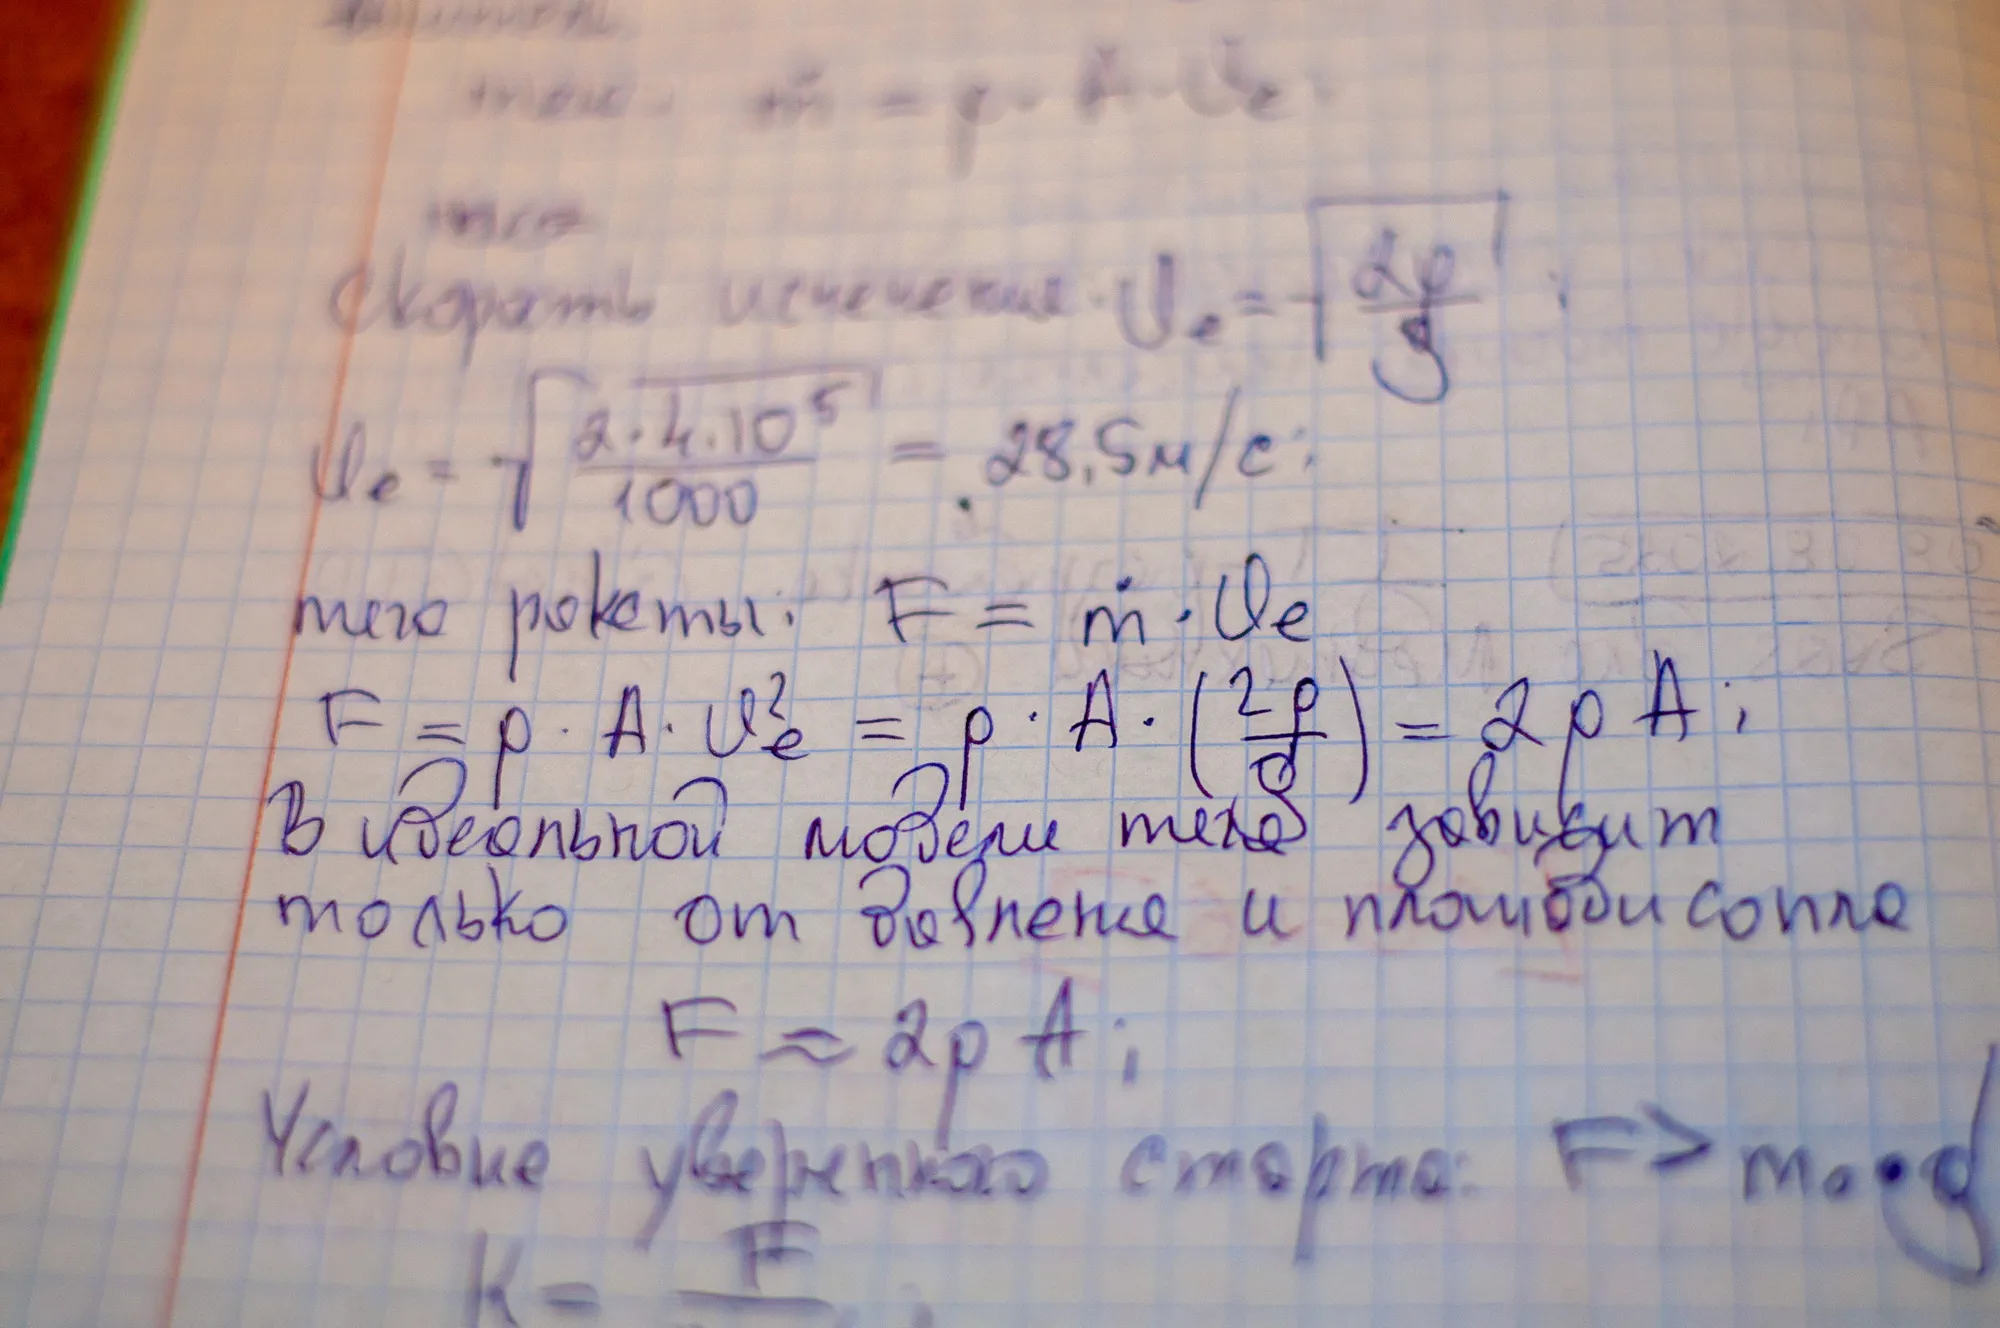 ṁ = ρ · A · Ve
Скорость истечения: Ve = √(2p/ρ);
Ve = √(2·4·10⁵/1000) = 28,5 м/с;
тяга ракеты: F = ṁ · Ve
F = ρ · A · Ve² = ρ · A · (2p/ρ) = 2pA;
В идеальной модели тяга зависит
только от давления и площади сопла
F ≈ 2pA;
Условие уверенного старта: F > m₀·g
K = F